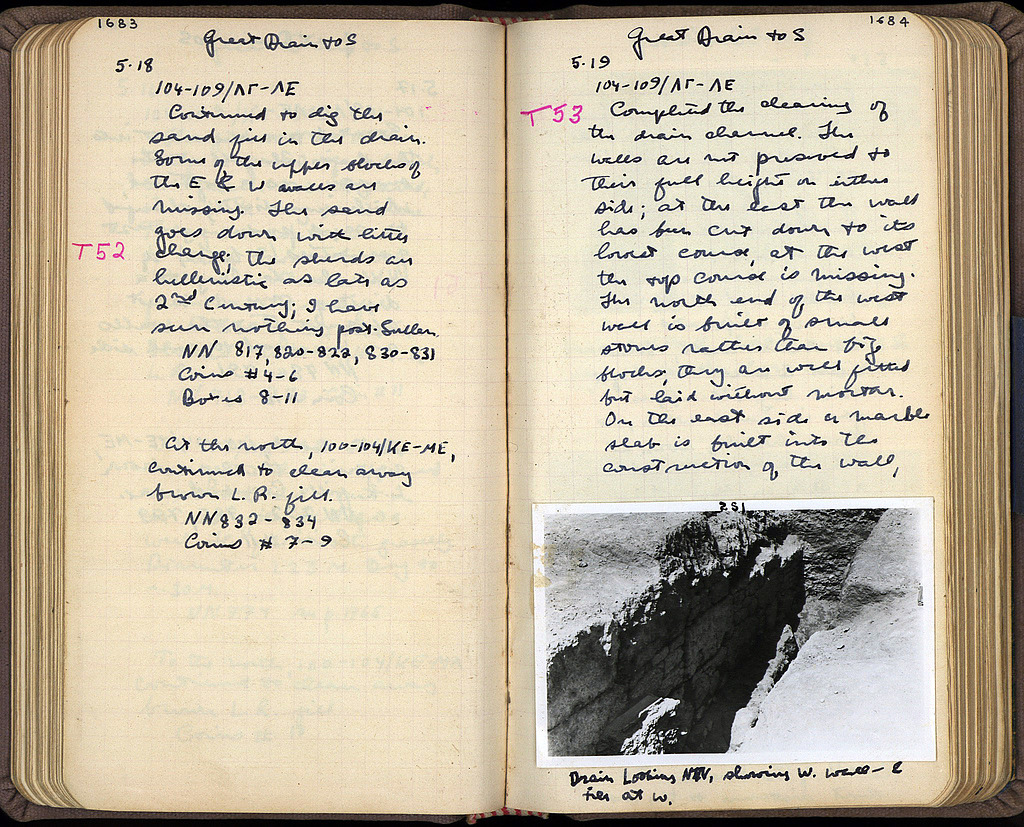 1683
Great Drain to S
5.18
104-109/ΛΓ-ΛΕ
Continued to dig the
sand fill in the drain.
Some of the upper blocks of
the E & W walls are
missing. The sand
goes down with little
T52
change; the sherds are
hellenistic as late as
2nd Century; I have
seen nothing post-Sullan.
NN 817, 820-822, 830-831
Coins #4-6
Boxes 8-11
At the north, 100-104/ΚΕ-ΜΕ,
continued to clear away
brown L.R. fill.
NN 832-834
Coins # 7-9
1684
Great Drain to S
5.19
104-109/ΛΓ-ΛΕ
T53
Completed the clearing of
the drain channel. The
walls are not preserved to
their full height on either
side; at the east the wall
has been cut down to its
lowest course, at the west
the top course is missing.
The north end of the west
wall is built of small
stones rather than big
blocks; they are well fitted
but laid without mortar.
On the east side a marble
slab is built into the
construction of the wall,
Drain Looking NW, showing W. wall -
at W.